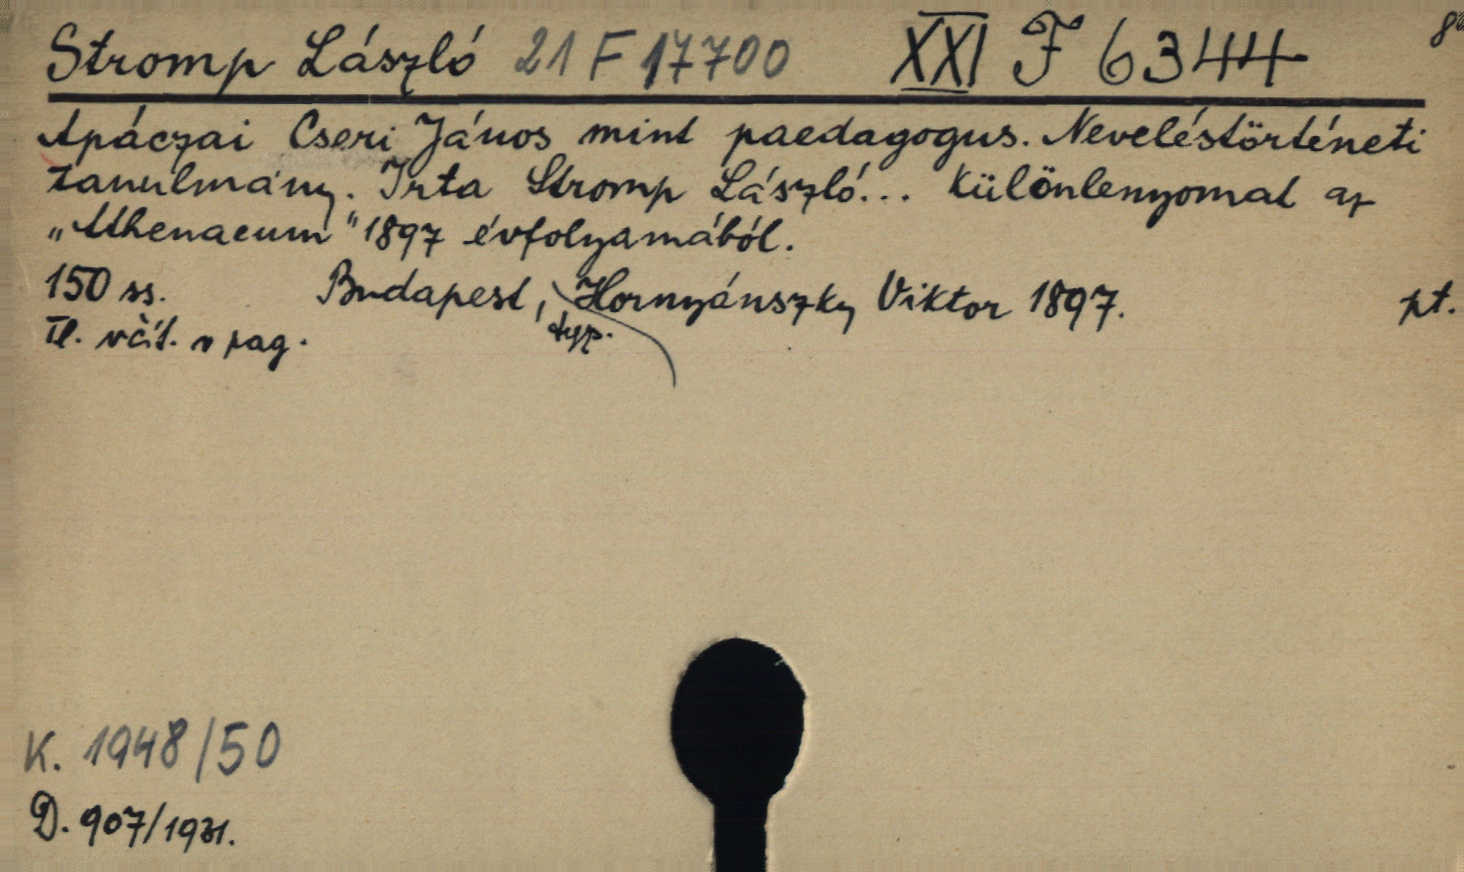 Stromp László 21 F 17700 XXI F 6344 8°
Apáczai Cseri János mint paedagogus. Neveléstörténeti
tanulmány. Irta Stromp László... Különlenyomat az
„Athenaeum" 1897 évfolyamából.
150 ss. Budapest, Hornyánszky Viktor 1897. pt.
Il. včít. v pag. typ.
K. 1948/50
D. 907/1931.